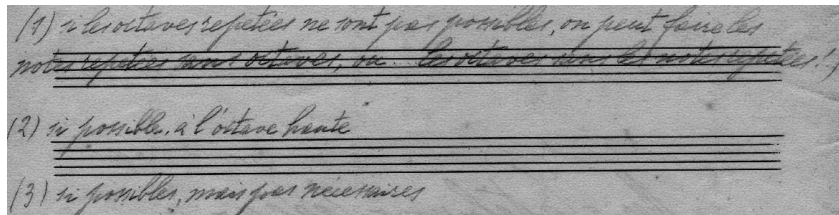 (1) si les octaves repetées ne sont pas possibles, on peut faire les
notes repetées sans octaves, ou les octaves sans les notes repetées.
(2) si possible, à l'octave haute
(3) si possibles, mais pas nécessaires